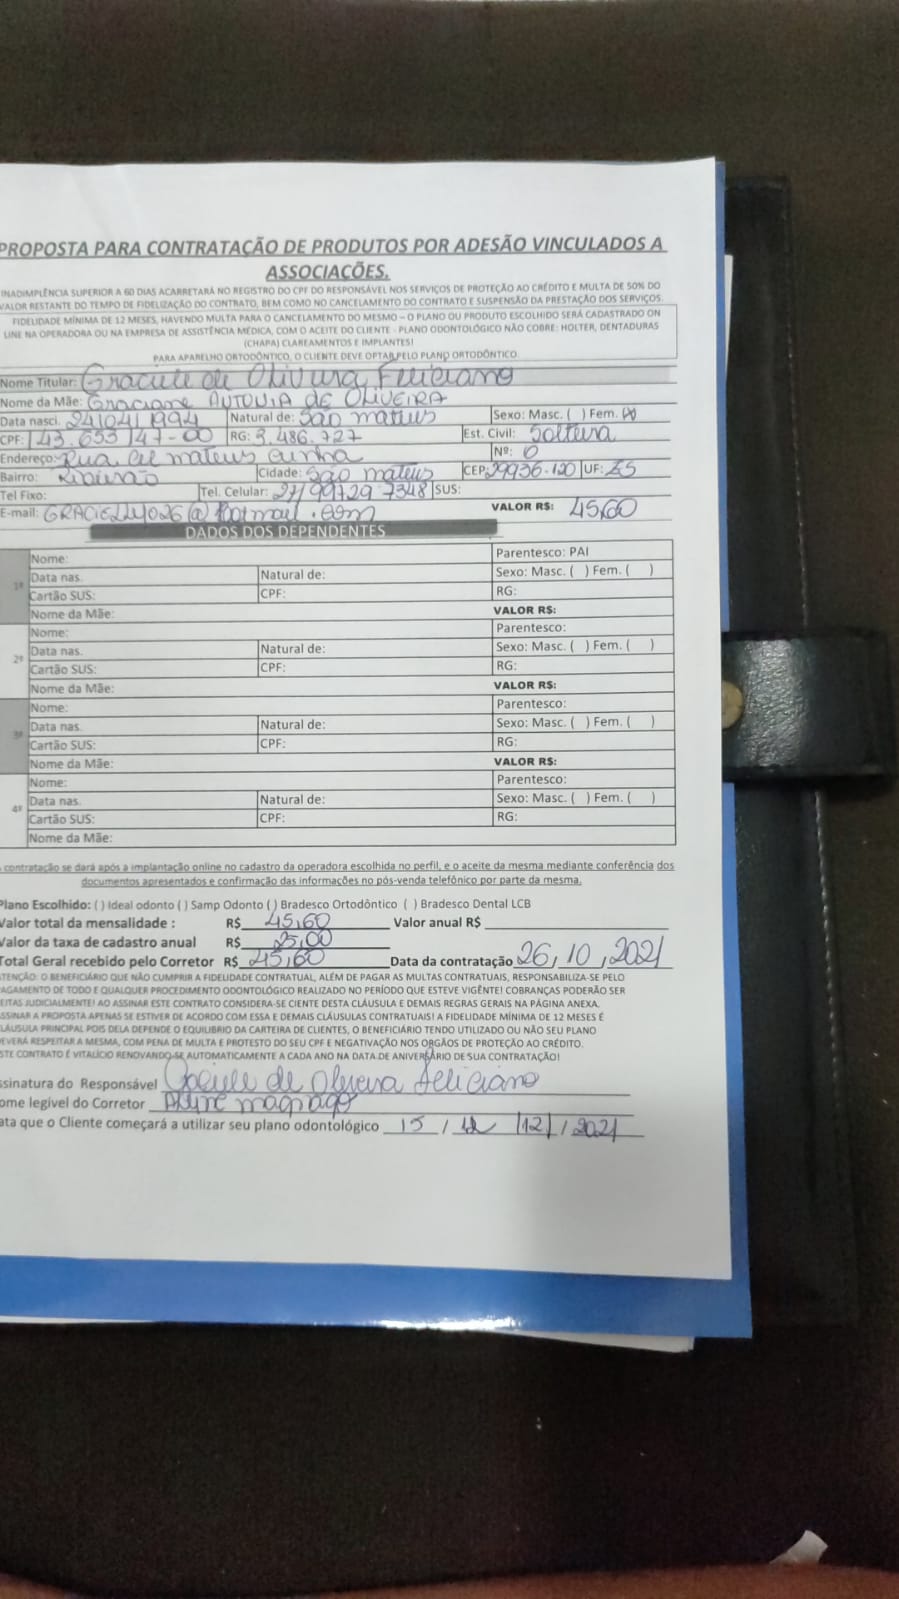 PROPOSTA PARA CONTRATAÇÃO DE PRODUTOS POR ADESÃO VINCULADOS A
ASSOCIAÇÕES.
INADIMPLÊNCIA SUPERIOR A 60 DIAS ACARRETARÁ NO REGISTRO DO CPF DO RESPONSÁVEL NOS SERVIÇOS DE PROTEÇÃO AO CRÉDITO E MULTA DE 50% DO
VALOR RESTANTE DO TEMPO DE FIDELIZAÇÃO DO CONTRATO, BEM COMO NO CANCELAMENTO DO CONTRATO E SUSPENSÃO DA PRESTAÇÃO DOS SERVIÇOS.
FIDELIDADE MÍNIMA DE 12 MESES, HAVENDO MULTA PARA O CANCELAMENTO DO MESMO – O PLANO OU PRODUTO ESCOLHIDO SERÁ CADASTRADO ON
LINE NA OPERADORA OU NA EMPRESA DE ASSISTÊNCIA MÉDICA, COM O ACEITE DO CLIENTE - PLANO ODONTOLÓGICO NÃO COBRE: HOLTER, DENTADURAS
(CHAPA) CLAREAMENTOS E IMPLANTES!
PARA APARELHO ORTODÔNTICO, O CLIENTE DEVE OPTAR PELO PLANO ORTODÔNTICO
Nome Titular: Graciele de Oliveira Feliciano
Nome da Mãe: Graciane ANTONIA DE OLIVEIRA
Data nasci. 24/04/1994 Natural de: São mateus Sexo: Masc. ( ) Fem. (X)
CPF: 143.653 147-00 RG: 3.486.727 Est. Civil: Solteira
Endereço: Rua mateus Cunha Nº: 0
Bairro: Ribeirão Cidade: São mateus CEP: 29936-120 UF: ES
Tel Fixo: Tel. Celular: 27/99729 7348 SUS:
E-mail: @hotmail.com VALOR R$: 45,60
DADOS DOS DEPENDENTES
1º Nome: Parentesco: PAI
Data nas. Natural de: Sexo: Masc. ( ) Fem. ( )
Cartão SUS: CPF: RG:
Nome da Mãe: VALOR R$:
2º Nome: Parentesco:
Data nas. Natural de: Sexo: Masc. ( ) Fem. ( )
Cartão SUS: CPF: RG:
Nome da Mãe: VALOR R$:
3º Nome: Parentesco:
Data nas. Natural de: Sexo: Masc. ( ) Fem. ( )
Cartão SUS: CPF: RG:
Nome da Mãe: VALOR R$:
4º Nome: Parentesco:
Data nas. Natural de: Sexo: Masc. ( ) Fem. ( )
Cartão SUS: CPF: RG:
Nome da Mãe:
contratação se dará após a implantação online no cadastro da operadora escolhida no perfil, e o aceite da mesma mediante conferência dos
documentos apresentados e confirmação das informações no pós-venda telefônico por parte da mesma.
Plano Escolhido: ( ) Ideal odonto ( ) Samp Odonto ( ) Bradesco Ortodôntico ( ) Bradesco Dental LCB
Valor total da mensalidade : R$ 45,60 Valor anual R$
Valor da taxa de cadastro anual R$ 25,00
Total Geral recebido pelo Corretor R$ 45,60 Data da contratação 26, 10, 2021
TENÇÃO: O BENEFICIÁRIO QUE NÃO CUMPRIR A FIDELIDADE CONTRATUAL, ALÉM DE PAGAR AS MULTAS CONTRATUAIS, RESPONSABILIZA-SE PELO
AGAMENTO DE TODO E QUALQUER PROCEDIMENTO ODONTOLÓGICO REALIZADO NO PERÍODO QUE ESTEVE VIGENTE! COBRANÇAS PODERÃO SER
EITAS JUDICIALMENTE! AO ASSINAR ESTE CONTRATO CONSIDERA-SE CIENTE DESTA CLÁUSULA E DEMAIS REGRAS GERAIS NA PÁGINA ANEXA.
SSINAR A PROPOSTA APENAS SE ESTIVER DE ACORDO COM ESSA E DEMAIS CLÁUSULAS CONTRATUAIS! A FIDELIDADE MÍNIMA DE 12 MESES É
LÁUSULA PRINCIPAL POIS DELA DEPENDE O EQUILIBRIO DA CARTEIRA DE CLIENTES, O BENEFICIÁRIO TENDO UTILIZADO OU NÃO SEU PLANO
EVERÁ RESPEITAR A MESMA, COM PENA DE MULTA E PROTESTO DO SEU CPF E NEGATIVAÇÃO NOS ORGÃOS DE PROTEÇÃO AO CRÉDITO.
STE CONTRATO É VITALÍCIO RENOVANDO-SE AUTOMATICAMENTE A CADA ANO NA DATA DE ANIVERSÁRIO DE SUA CONTRATAÇÃO!
ssinatura do Responsável Graciele de Oliveira Feliciano
ome legível do Corretor Aline magnago
ata que o Cliente começará a utilizar seu plano odontológico 15 / 12 /12/ / 2021